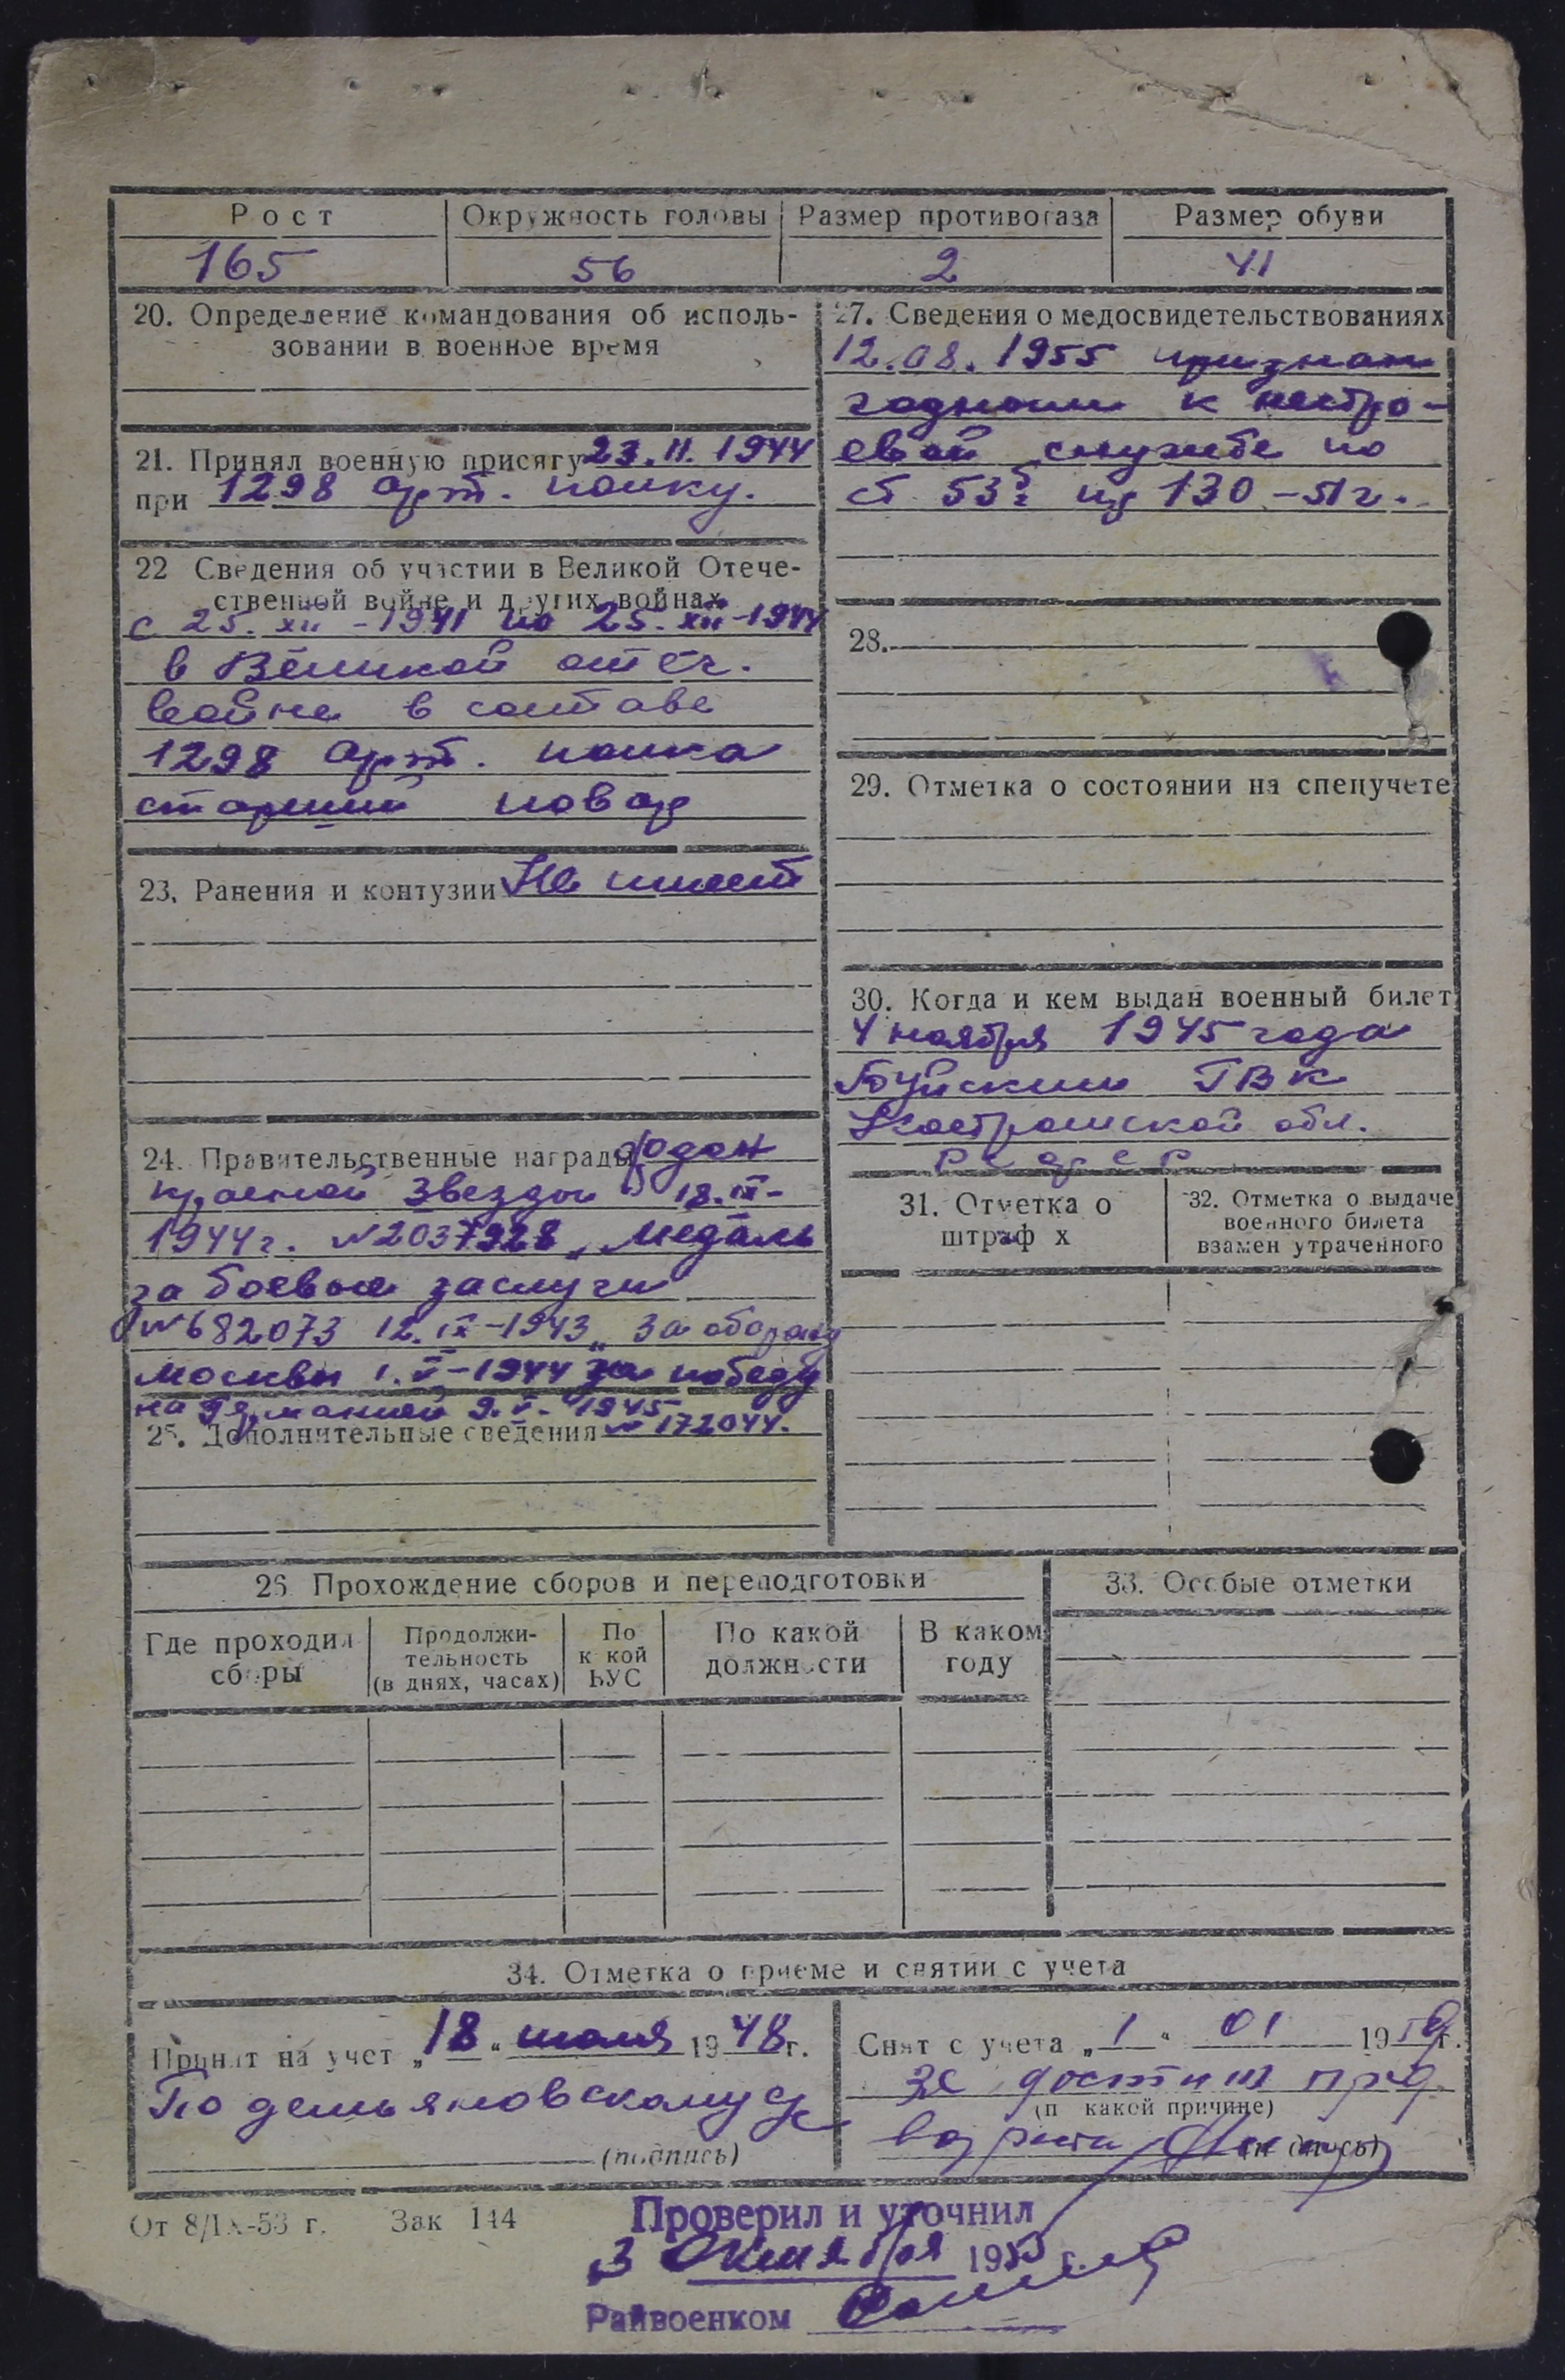 Рост
Окружность головы
Размер противогаза
Размер обуви
165
56
2
41
20. Определение командования об исполь-
зовании в военное время
21. Принял военную присягу 23.11.1944
при 1298 арт. полку.
22 Сведения об участии в Великой Отече-
ственной войне и других войнах
с 25.XII-1941 по 25.XII-1944
в Великой отеч.
войне в составе
1298 арт. полка
старший повар
23. Ранения и контузии Не имеет
24. Правительственные награды Орден
красной звезды 18.IX-
1944г. N2037928, Медаль
за боевые заслуги
N682073 12.IX-1943 „За оборону
Москвы 1.V-1944 за победу
на Германией 9.V-1945
25. Дополнительные сведения N 172044.
27. Сведения о медосвидетельствованиях
12.08.1955 признан
годным к нестро-
евой службе по
ст 53 пр 130-51г.
28.
29. Отметка о состоянии на спецучете
30. Когда и кем выдан военный билет
4 ноября 1945 года
Буйским ГВК
Костромской обл.
31. Отметка о
штраф х
32. Отметка о выдаче
военного билета
взамен утраченного
26. Прохождение сборов и переподготовки
33. Особые отметки
Где проходил
сборы
Продолжи-
тельность
(в днях, часах)
По
к кой
ВУС
По какой
должности
В каком
году
34. Отметка о приеме и снятии с учета
Принят на учет „18“ июля 1948г.
По демьяновскому
(подпись)
Снят с учета „1“ 01 19 г.
за достиж пред
(п какой причине)
возраста
(подпись)
От 8/IX-53 г. Зак 144
Проверил и уточнил
3 октября 1955 г.
Райвоенком